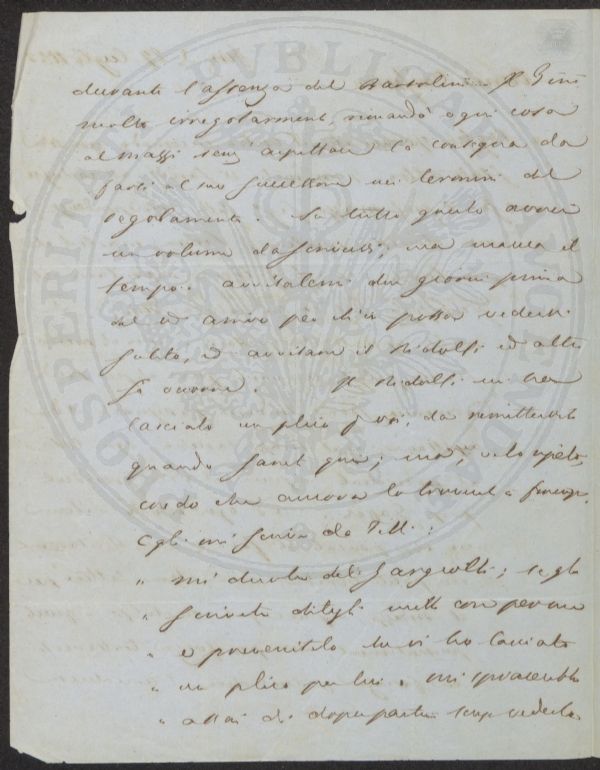 durante l'assenza del Bartolini. Il Geri
molto irregolarmente, rimandò ogni cosa
al Mazzi senz'aspettare la consegna da
farsi al suo successore nei termini del
regolamento. Su tutto questo avrei
un volume da scrivervi, ma manca il
tempo. Avvisatemi due giorni prima
del vo arrivo per ch'io possa vedervi
subito, ed avvisare il Ridolfi ed altri
se occorre. Il Ridolfi mi ha
lasciato un plico p voi, da rimettervi
quando sarete qui; ma, ve lo ripeto,
credo che ancora lo troverete a Firenze.
Egli mi scrive da
" mi duole del ; se gli
" scrivete ditegli mille cose per me
" e prevenitelo che vi ho lasciato
" un plico per lui. mi spiacerebbe
" assai di dover partire senza vederlo.
PROSPERITATI PUBLICAE AUGENDAE